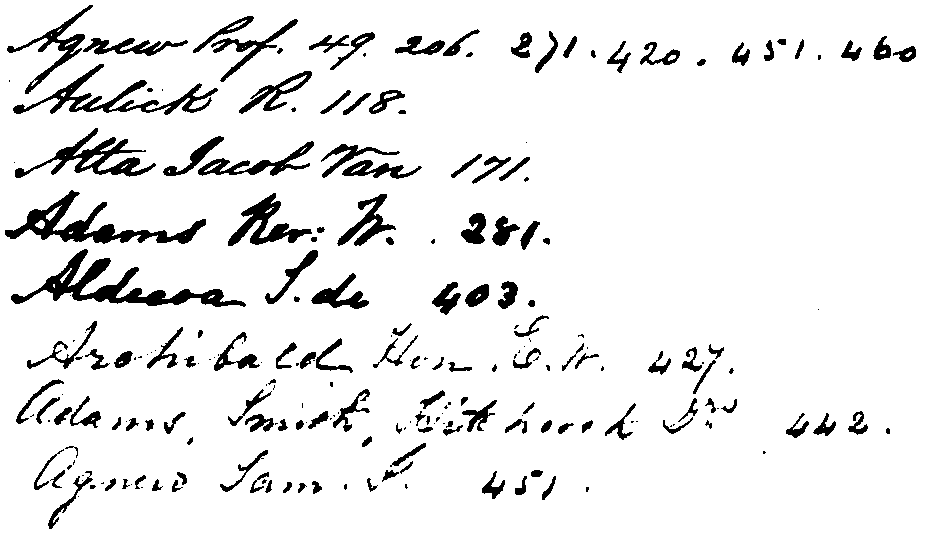 Agnew Prof. 49. 206. 271. 420. 451. 460
Aulick R. 118.
Atta Jacob Van 171.
Adams Rev: W. 281.
Aldecoa S. de 403.
Archibald Hon. E. W. 427.
Adams, Smith, Hitchcock Drs 442.
Agnew Sam. S. 451.